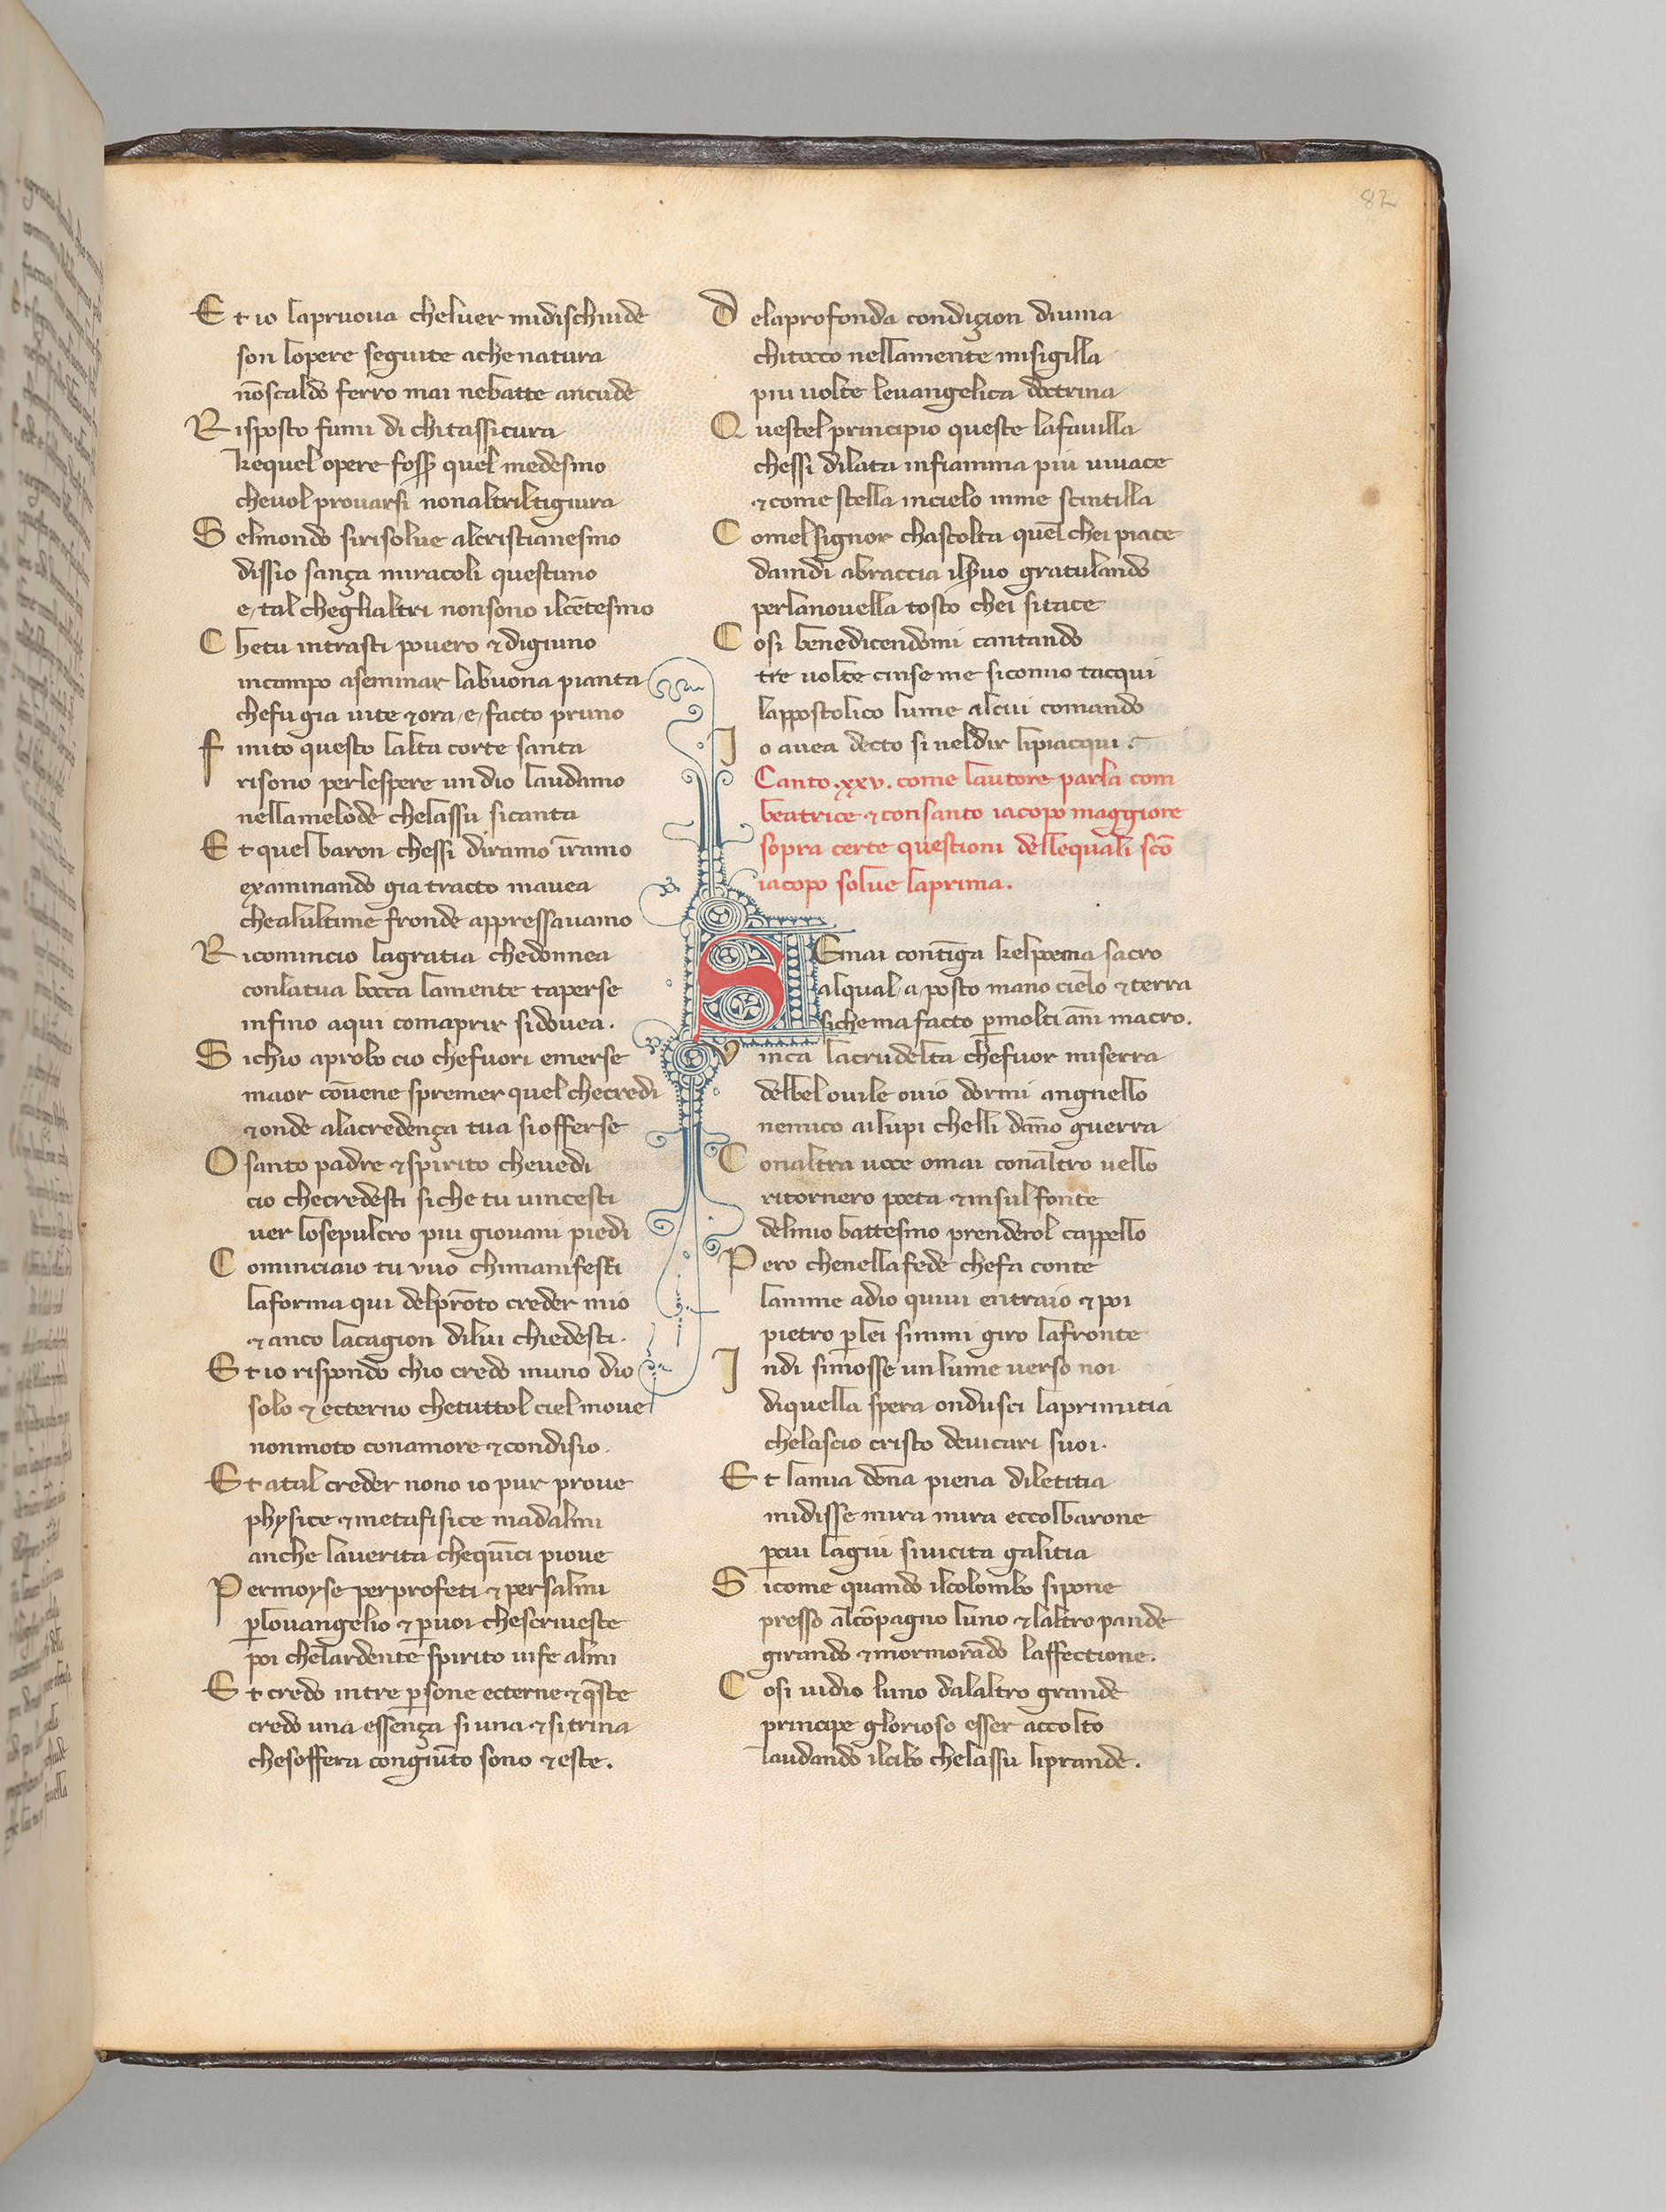 82
Et io lapruova chel uer midischiude
son lopere seguite ache natura
nōscaldo ferro mai ne batte ancude
Risposto fumi di chi tassicura
kequel opere foss̄ quel medesmo
che uol prouarsi non altri lti giura
Sel mondo si risolue al cristianesmo
dissio sança miracoli questuno
e, tal che glialtri non sono il cētesmo
Che tu intrasti pouero ⁊ digiuno
in campo a seminar la buona pianta
che fu gia uite ⁊ ora, e, facto pruno
finito questo lalta corte santa
risono per le spere un dio laudamo
nella melode che lassu si canta
Et quel baron chessi di ramo ī ramo
examinando gia tracto mauea
che alultime fronde appressauamo
Ricomincio la gratia che donnea
con la tua bocca la mente taperse
infino a qui comaprir si douea.
Sichio aprobo cio che fuori emerse
ma or cōuene spremer quel che credi
⁊ onde ala credença tua si offerse
O santo padre ⁊ spirito che uedi
cio che credesti si che tu uincesti
uer lo sepulcro piu giouani piedi
Cominciaio tu vuo chi manifesti
la forma qui del prōto creder mio
⁊ anco la cagion di lui chiedesti.
Et io rispondo chio credo in uno dio
solo ⁊ ecterno che tuttol ciel moue
non moto con amore ⁊ con disio.
Et a tal creder nono io pur proue
physice ⁊ metafisice ma dalmi
anche la uerita che quīci pioue
Per moyse per profeti ⁊ per salmi
p louangelio ⁊ p uoi che scriueste
poi che lardente spirito ui fe almi
Et credo in tre psone ecterne ⁊ q̄ste
credo una essença si una ⁊ si trina
che soffera congiūto sono ⁊ este.
Dela profonda condiçion diuina
chi tocco nella mente mi sigilla
piu uolte leuangelica doctrina
Questel principio queste la fauilla
chessi dilata in fiamma piu uiuace
⁊ come stella in cielo in me scintilla
Comel signor chascolta quel chei piace
da indi abraccia il s̄uo gratulando
per la nouella tosto chei si tace
Cosi benedicendomi cantando
tre uolte cinse me si comio tacqui
lappostolico lume al cui comando
Io auea decto si nel dir li piacqui.
Canto .xxv. come lautore parla com
beatrice ⁊ con santo iacopo maggiore
sopra certe questioni delle quali sc̄o
iacopo solue la prima.
SEmai contīga kel poema sacro
al qual, a, posto mano cielo ⁊ terra
si che ma facto p molti āni macro.
Vinca la crudelta che fuor mi serra
del bel ouile ouio dormi angnello
nemico ai lupi chelli dāno guerra
Con altra uoce omai con altro uello
ritornero poeta ⁊ in sul fonte
del mio battesmo prenderol cappello
Pero che nella fede che fa conte
lanime a dio quiui entraio ⁊ poi
pietro p lei si mi giro la fronte
Indi si mosse un lume uerso noi
di quella spera ondusci la primitia
che lascio cristo de uicari suoi.
Et la mia dōna piena di letitia
mi disse mira mira eccol barone
p cui la giu si uicita galitia
Sicome quando il colombo si pone
presso al cōpagno luno ⁊ laltro pande
girando ⁊ mormorādo laffectione.
Cosi uidio luno dalaltro grande
principe glorioso esser accolto
laudando il cibo che lassu li prande.